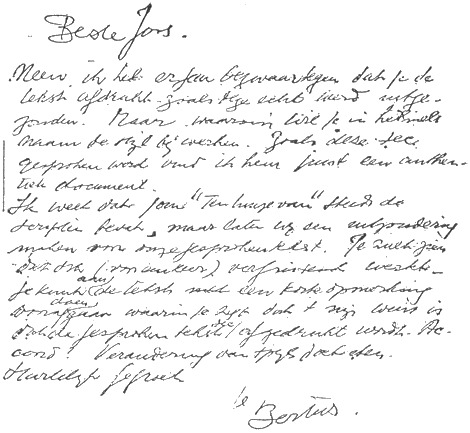 Beste Joos.
Neen, ik heb er geen bezwaar tegen dat je de
tekst afdrukt zoals deze echt werd uitge-
zonden. Maar waarom wil je in hemels
naam de stijl bij werken. Zoals deze
gesproken werd vind ik hem juist een authen-
tiek document.
Ik weet dat jouw "Ten huize van" steeds de
scriptie bevat, maar laten wij een uitzondering
maken voor onze gesproken tekst. Je zult zien
dat dit (voor een keer) verfrissend werkt.
Je kunt aan de tekst een korte opmerking
doen
voorafgaan waarin je zegt dat 't mijn wens is
dat de gesproken tekst afgedrukt wordt. Ac-
coord? Verandering van spijs doet eten.
Hartelijk gegroet
je
Bertus.